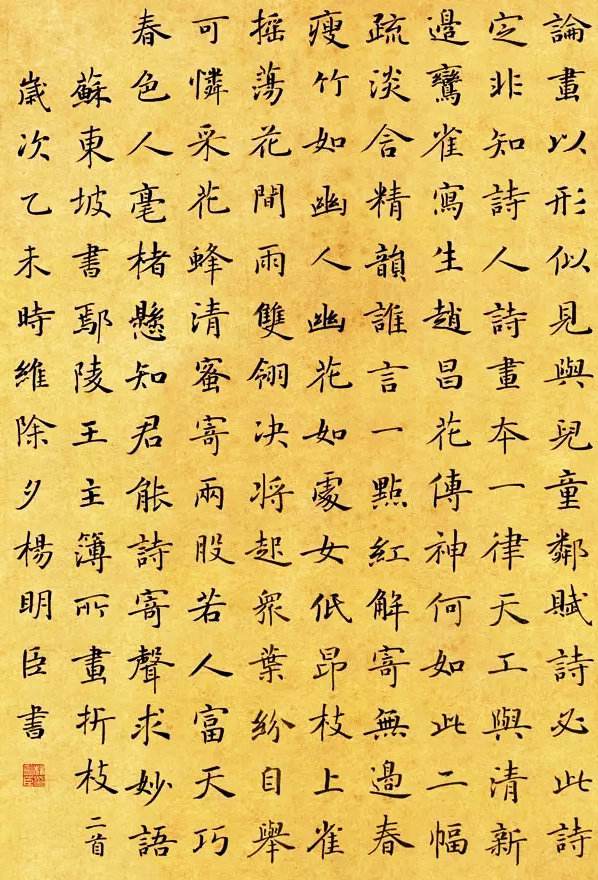 論畫以形似見與兒童鄰賦詩必此詩
定非知詩人詩畫本一律天工與清新
邊鸞雀寫生趙昌花傳神何如此二幅
疏淡含精韻誰言一點紅解寄無邊春
瘦竹如幽人幽花如處女低昂枝上雀
摇蕩花間雨雙翎决將起衆葉紛自舉
可憐采花蜂清蜜寄兩股若人富天巧
春色入毫楮懸知君能詩寄聲求妙語
蘇東坡書鄢陵王主簿所畫折枝二首
歲次乙未時維除夕楊明臣書